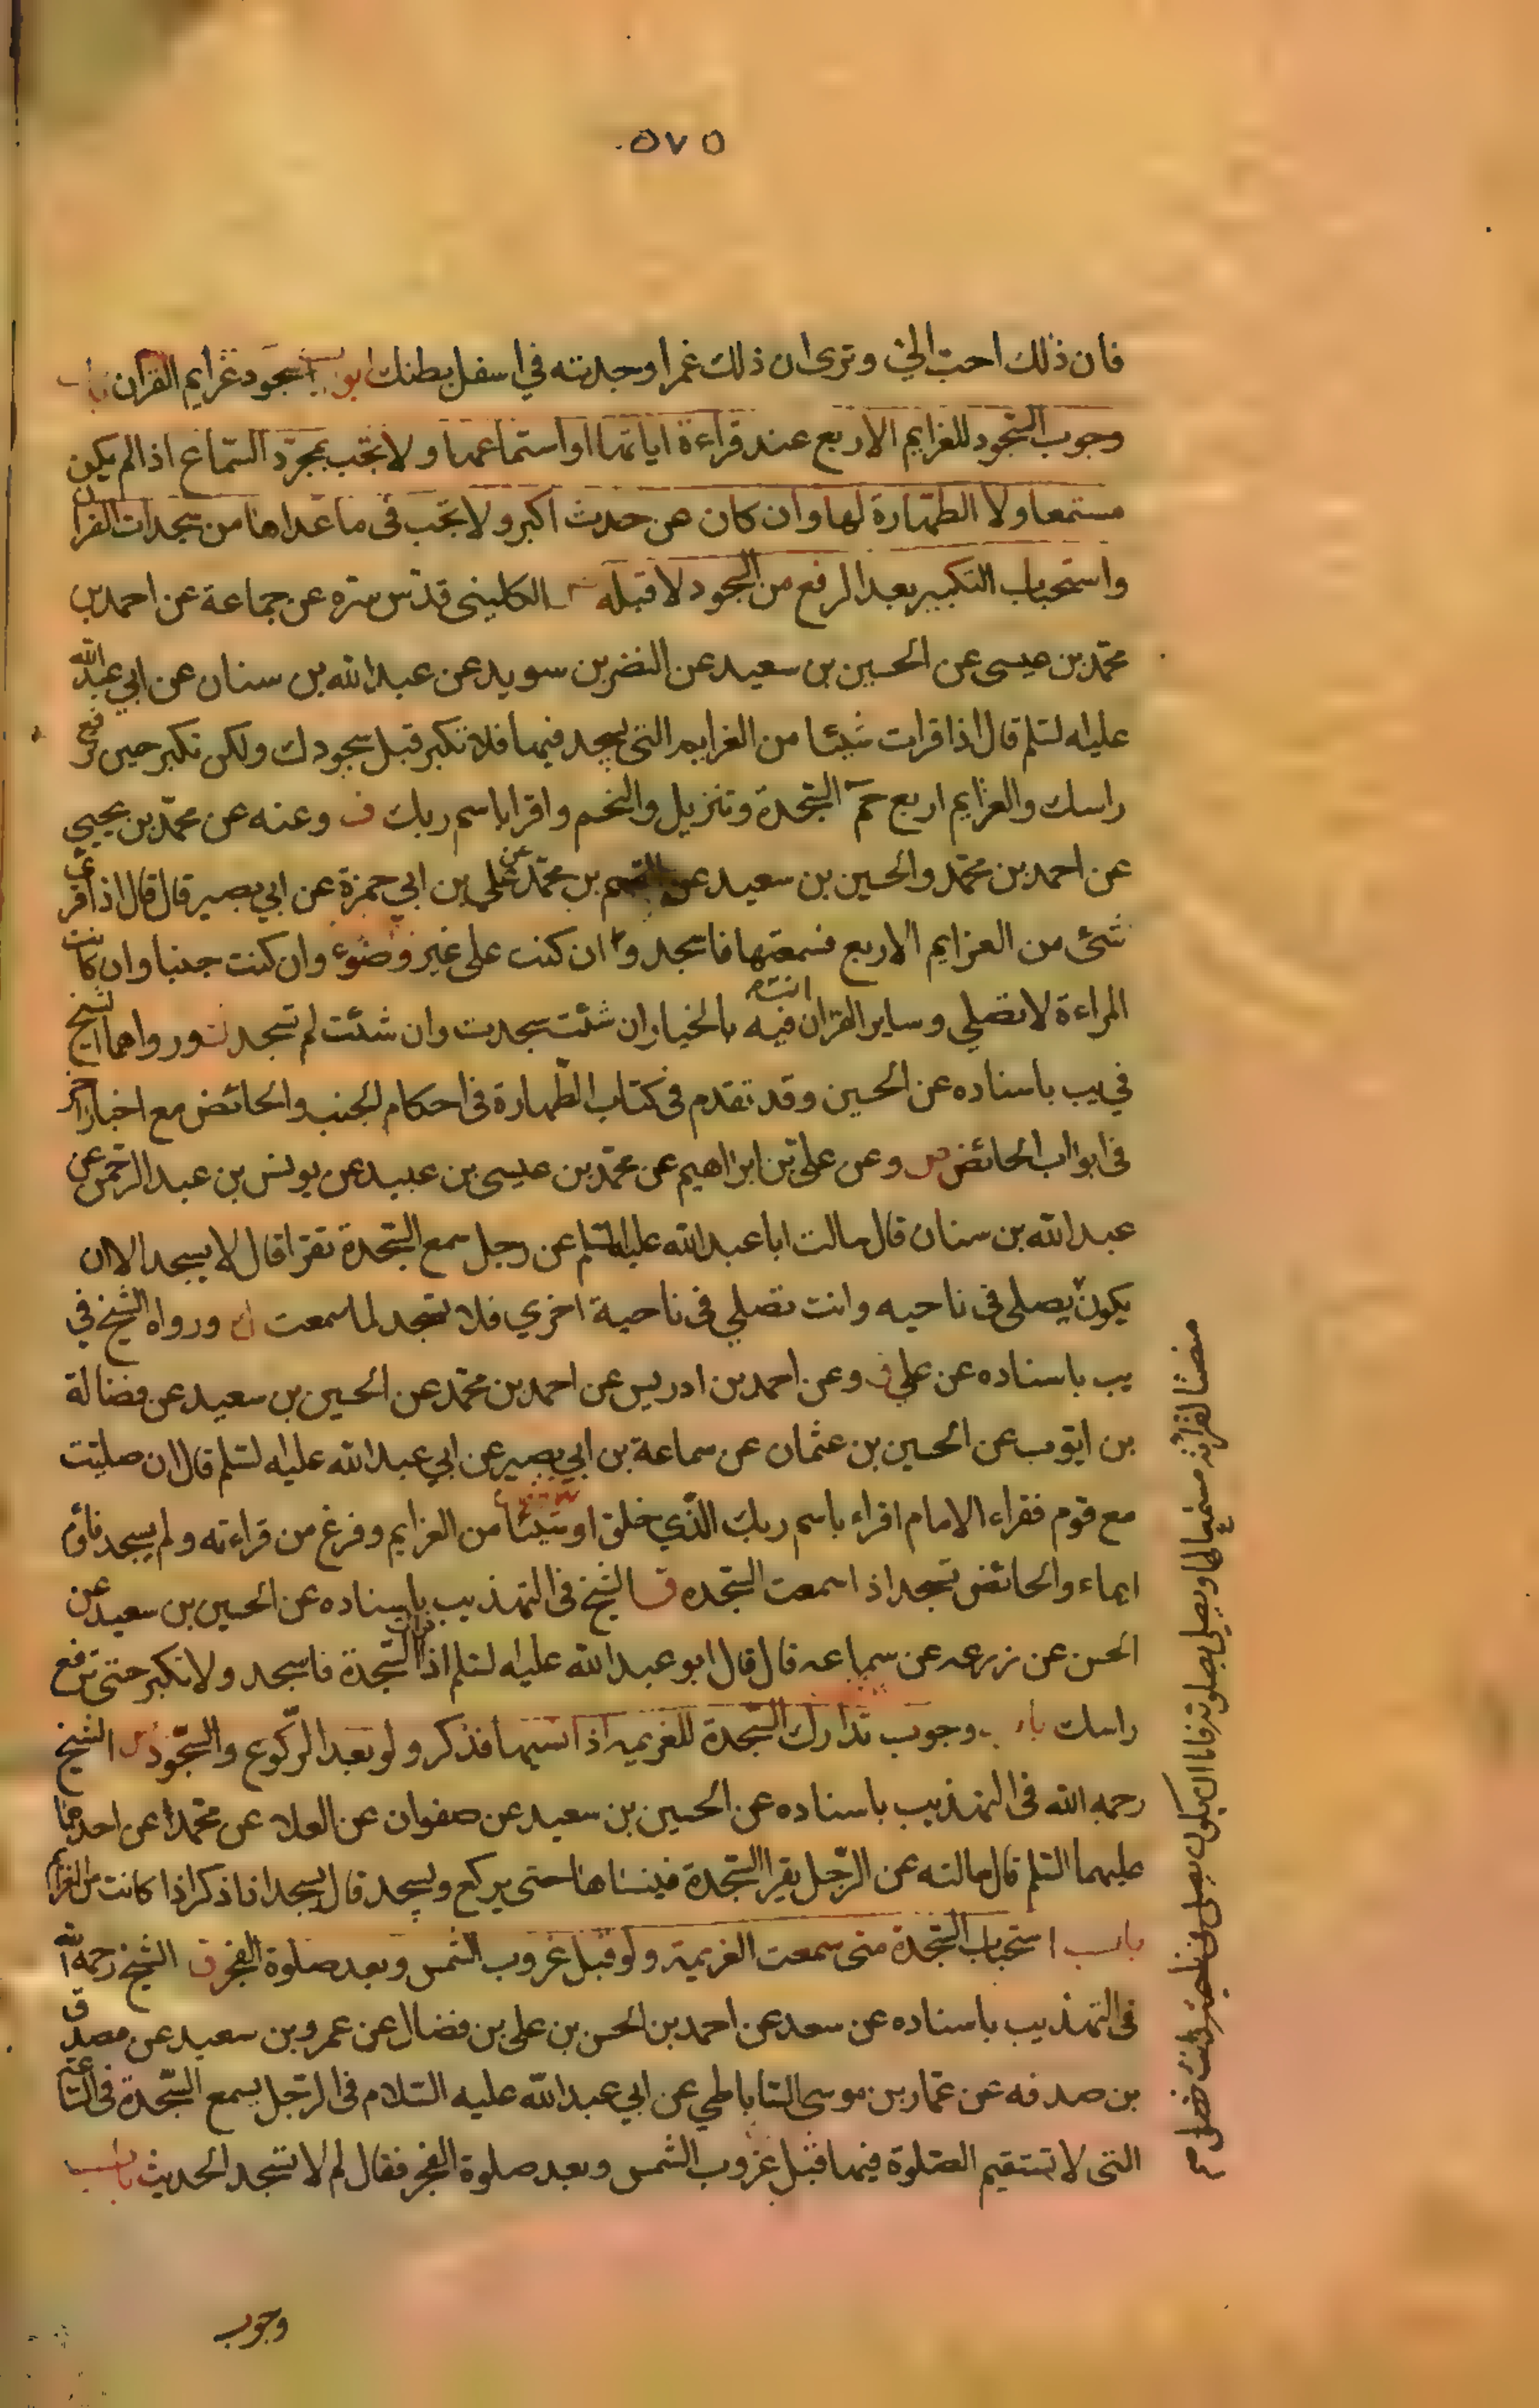 ٥٧٥
فان ذلك احب الي وترى ان ذلك غمرا وجدته في اسفل بطنك ابواب سجود عزايم القران باب
وجوب السجود للعزايم الاربع عند قراءة اياتها او استماعها ولا تجب بمجرد السماع اذا لم يكن
مستمعا ولا الطهارة لها وان كان عن حدث اكبر ولا تجب في ما عداها من سجدات القران
واستحباب التكبير بعد الرفع من السجود لا قبله الكليني قدس سره عن جماعة عن احمد بن
محمد بن عيسى عن الحسين بن سعيد عن النضر بن سويد عن عبد الله بن سنان عن ابي عبد الله
عليه السلم قال اذا قرات شيئا من العزايم التي يسجد فيها فلا تكبر قبل سجودك ولكن تكبر حين ترفع
راسك والعزايم اربع حم السجدة وتنزيل والنجم واقرا باسم ربك ف وعنه عن محمد بن يحيى
عن احمد بن محمد والحسين بن سعيد عن القسم بن محمد عن علي بن ابي حمزة عن ابي بصير قال قال اذا قرئ
شئ من العزايم الاربع فسمعتها فاسجد وان كنت على غير وضوء وان كنت جنبا وان كانت
المراءة لا تصلي وساير القران انت فيه بالخيار ان شئت سجدت وان شئت لم تسجد ورواهما الشيخ
في يب باسناده عن الحسين وقد تقدم في كتاب الطهارة في احكام الجنب والحائض مع اخبار اخر
في ابواب الحائض وعن علي بن ابراهيم عن محمد بن عيسى بن عبيد عن يونس بن عبد الرحمن عن
عبد الله بن سنان قال سالت ابا عبد الله عليه السلم عن رجل سمع السجدة تقرا قال لا يسجد الا ان
يكون يصلي في ناحيه وانت تصلي في ناحية اخري فلا تسجد لما سمعت ورواه الشيخ في
يب باسناده عن علي ف وعن احمد بن ادريس عن احمد بن محمد عن الحسين بن سعيد عن فضالة
بن ايوب عن الحسين بن عثمان عن سماعة بن ابي بصير عن ابي عبد الله عليه السلم قال ان صليت
مع قوم فقراء الامام اقراء باسم ربك الذي خلق او شيئا من العزايم وفرغ من قراءته ولم يسجد فاوم
ايماء والحائض تسجد اذا سمعت السجده ق الشيخ في التهذيب باسناده عن الحسين بن سعيد عن
الحسن عن زرعه عن سماعه قال قال ابو عبد الله عليه السلم اذا قرات السجدة فاسجد ولا تكبر حتى ترفع
راسك باب وجوب تدارك السجدة للعزيمه اذا نسيها فذكر ولو بعد الركوع والسجود الشيخ
رحمه الله في التهذيب باسناده عن الحسين بن سعيد عن صفوان عن العلا عن محمد عن احدهما
عليهما السلم قال سالته عن الرجل يقرا السجدة فينساها حتى يركع ويسجد قال يسجد اذا ذكر اذا كانت من العزايم
باب استحباب السجدة متى سمعت العزيمة ولو قبل غروب الشمس وبعد صلوة الفجر ق الشيخ رحمه الله
في التهذيب باسناده عن سعد عن احمد بن الحسن بن علي بن فضال عن عمرو بن سعيد عن مصدق
بن صدقه عن عمار بن موسى الساباطي عن ابي عبد الله عليه السلام في الرجل يسمع السجدة في الساعة
التي لا تستقيم الصلوة فيها قبل غروب الشمس وبعد صلوة الفجر فقال لا تسجد الحديث باب
منصتا لقرائته مستمعا لها ويصلي بصلوته فاما ان يكون يصلي في ناحيه وانت تصلي
وجوب